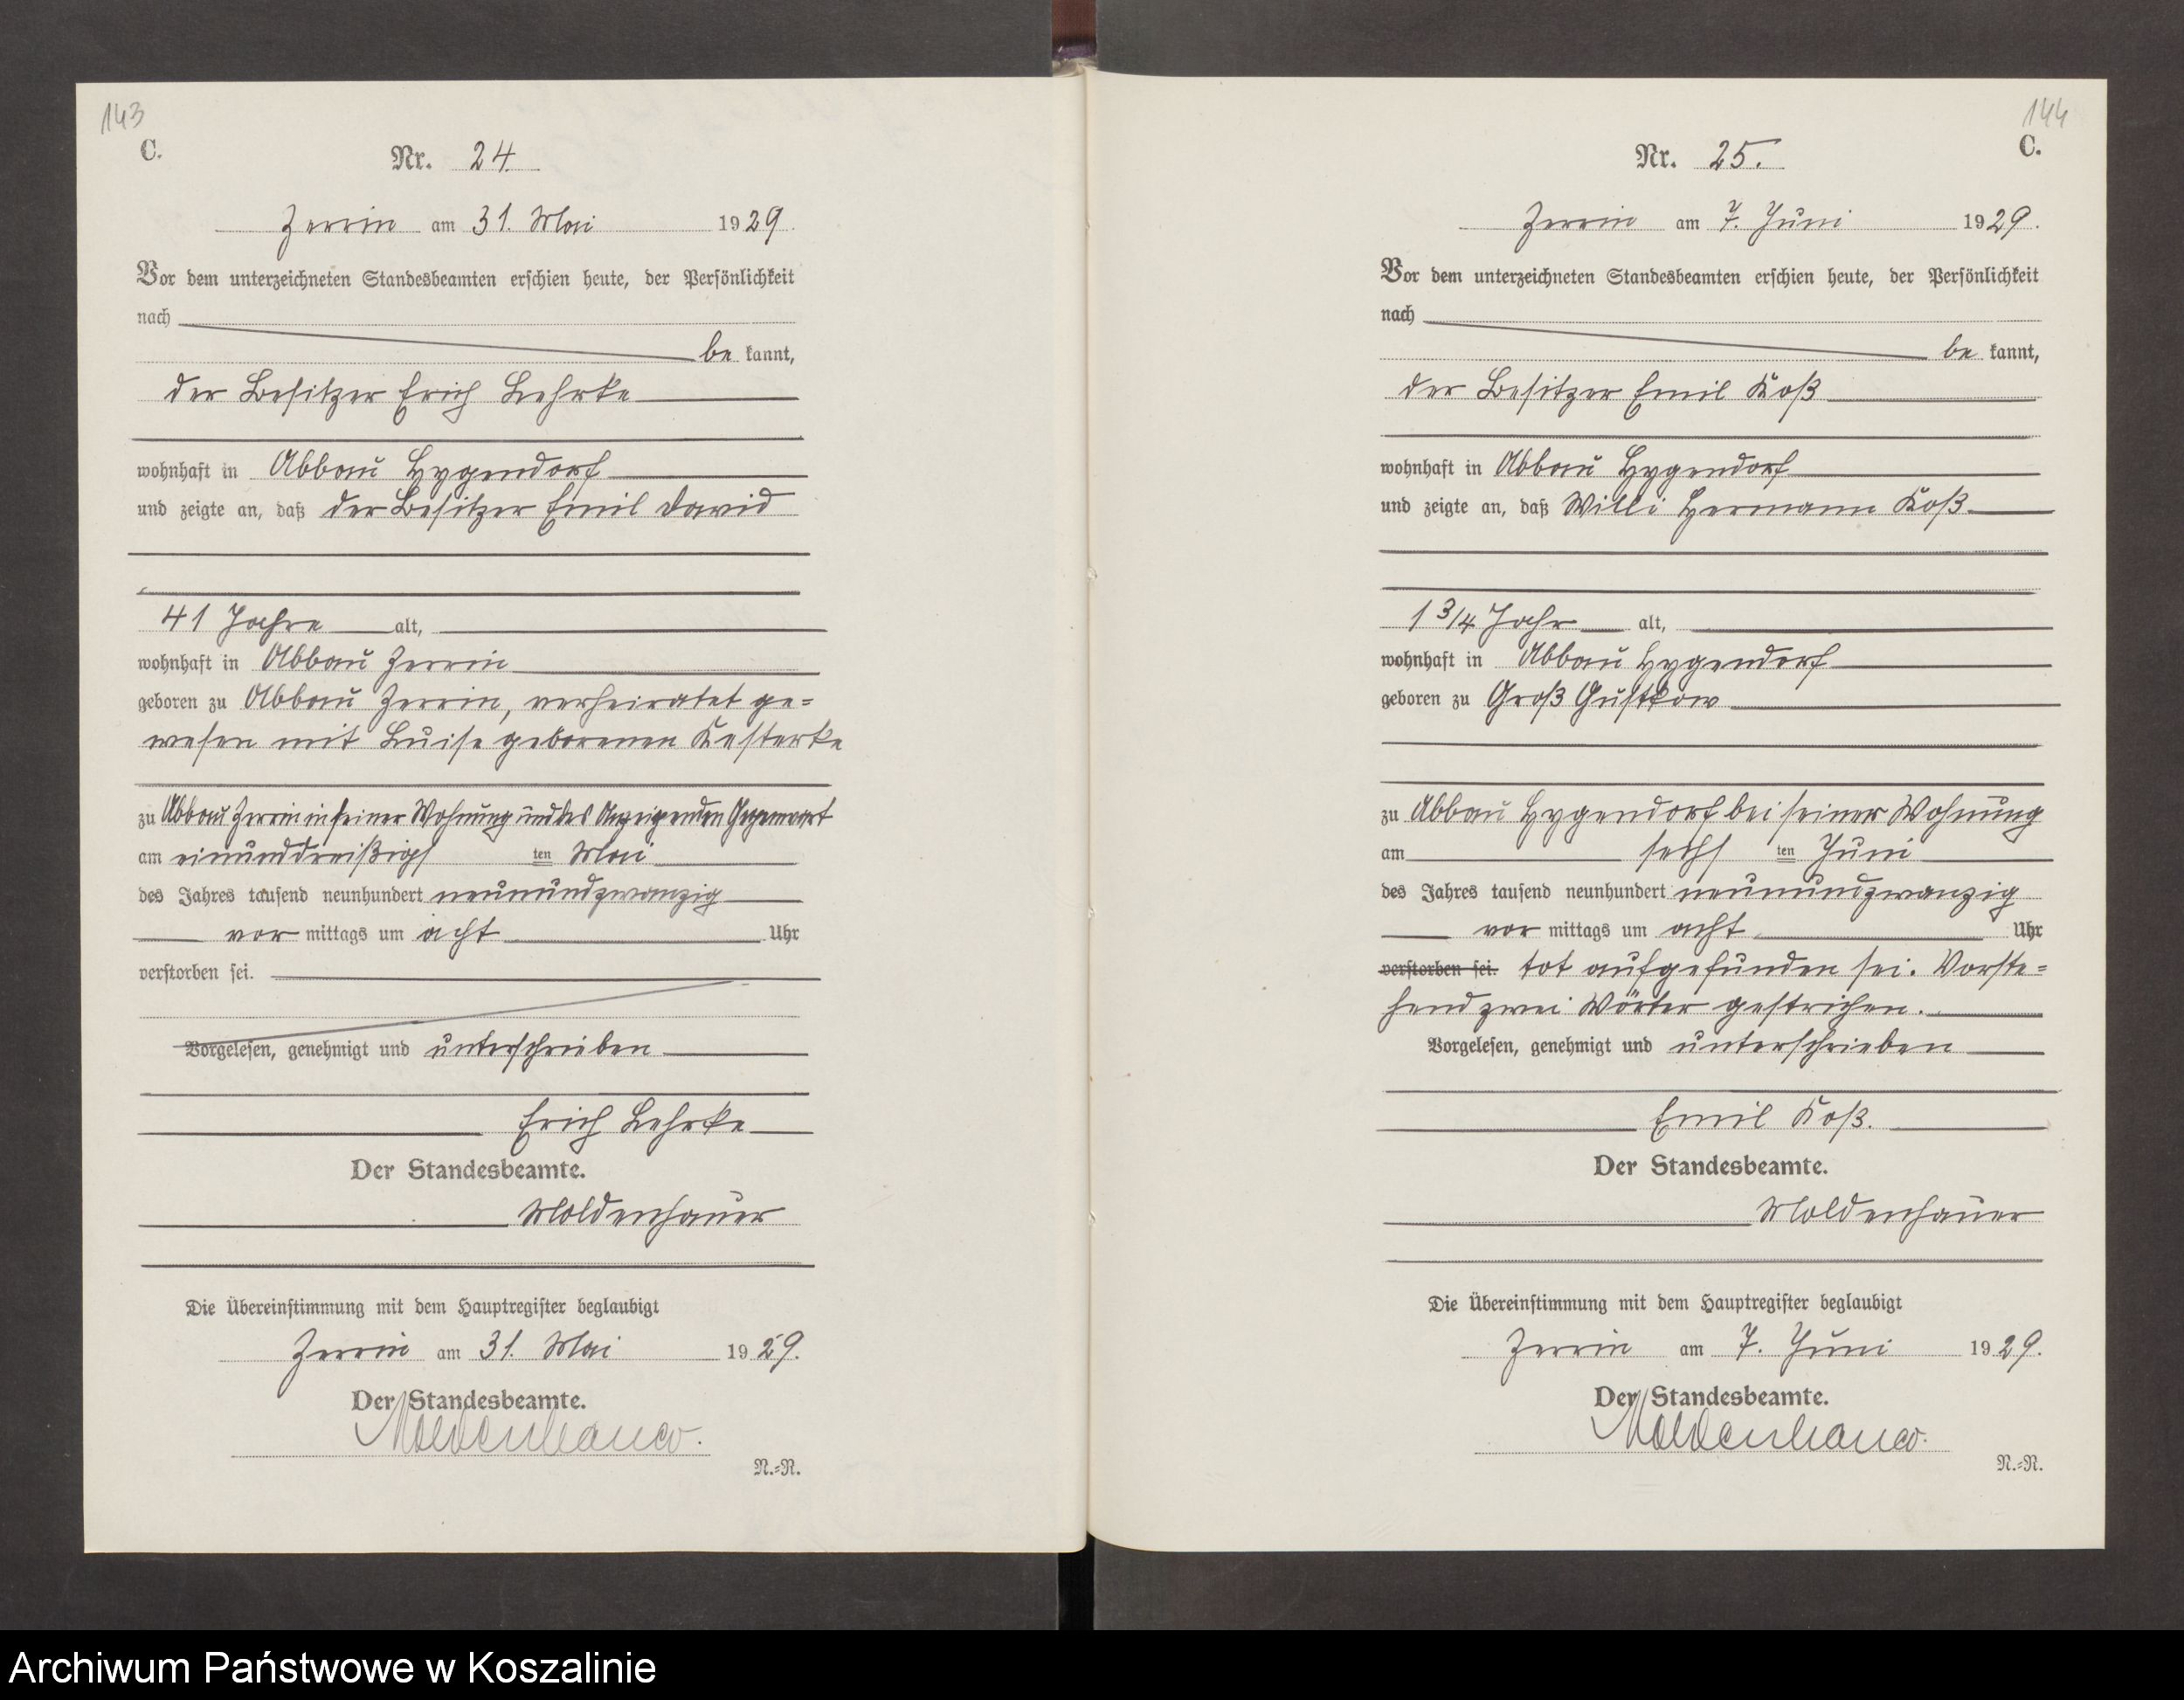 143
C.
Nr. 24.
Zerrin am 31. Mai 1929.
Vor dem unterzeichneten Standesbeamten erschien heute, der Persönlichkeit
nach
be kannt,
der Besitzer Erich Lehrke
wohnhaft in Abbau Hygendorf
und zeigte an, daß der Besitzer Emil David
41 Jahre alt,
wohnhaft in Abbau Zerrin
geboren zu Abbau Zerrin, verheiratet ge=
wesen mit Luise geborenen Kesterke
zu Abbau Zerrin in seiner Wohnung und des Anzeigenden Gegenwart
am einunddreißigs ten Mai
des Jahres tausend neunhundert neunundzwanzig
vor mittags um acht Uhr
verstorben sei.
Vorgelesen, genehmigt und unterschrieben
Erich Lehrke
Der Standesbeamte.
Moldenhauer
Die Übereinstimmung mit dem Hauptregister beglaubigt
Zerrin am 31. Mai 1929.
Der Standesbeamte.
Moldenhauer.
N.=R.
144
C.
Nr. 25.
Zerrin am 7. Juni 1929.
Vor dem unterzeichneten Standesbeamten erschien heute, der Persönlichkeit
nach
be kannt,
der Besitzer Emil Koß
wohnhaft in Abbau Hygendorf
und zeigte an, daß Willi Hermann Koß
1 3/4 Jahr alt,
wohnhaft in Abbau Hygendorf
geboren zu Groß Gustkow
zu Abbau Hygendorf bei seiner Wohnung
am sechs ten Juni
des Jahres tausend neunhundert neunundzwanzig
vor mittags um acht Uhr
verstorben sei. tot aufgefunden sei. Vorste=
hend zwei Wörter gestrichen.
Vorgelesen, genehmigt und unterschrieben
Emil Koß.
Der Standesbeamte.
Moldenhauer
Die Übereinstimmung mit dem Hauptregister beglaubigt
Zerrin am 7. Juni 1929.
Der Standesbeamte.
Moldenhauer.
N.=R.
Archiwum Państwowe w Koszalinie